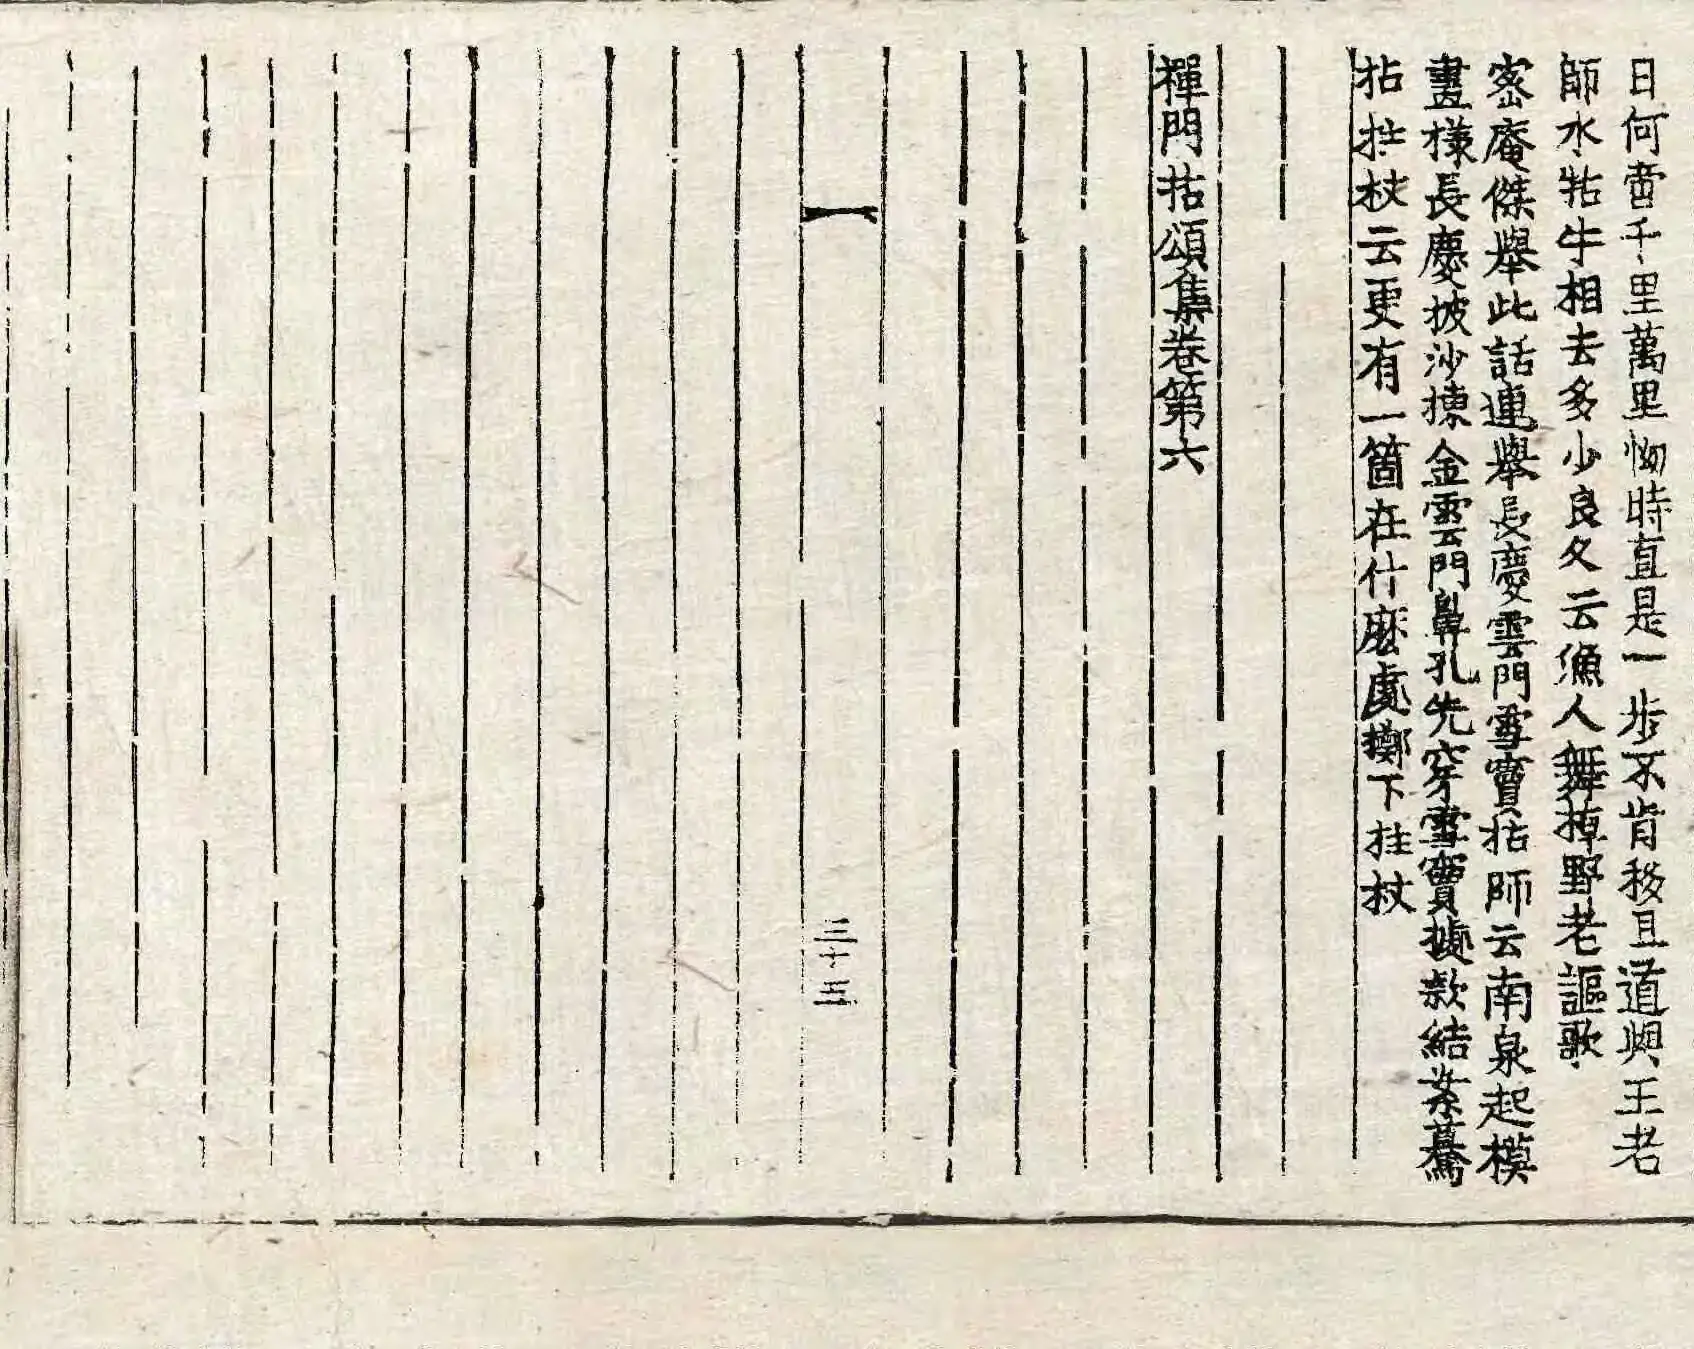 日何啻千里萬里恸時直是一步不肯移且道與王老
師水牯牛相去多少良久云漁人舞棹野老謳歌
密庵傑舉此話連舉長慶雲門雪竇拈師云南泉起模
畫樣長慶披沙揀金雲門鼻孔先穿雪竇據款結案驀
拈拄杖云更有一箇在什麽處擲下拄杖
禪門拈頌集卷第六
三十五